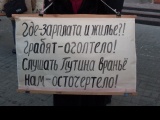 Где-зарплата и жилье?!
Грабят-оголтело!
Слушать Путина враньё
Нам-осточертело!